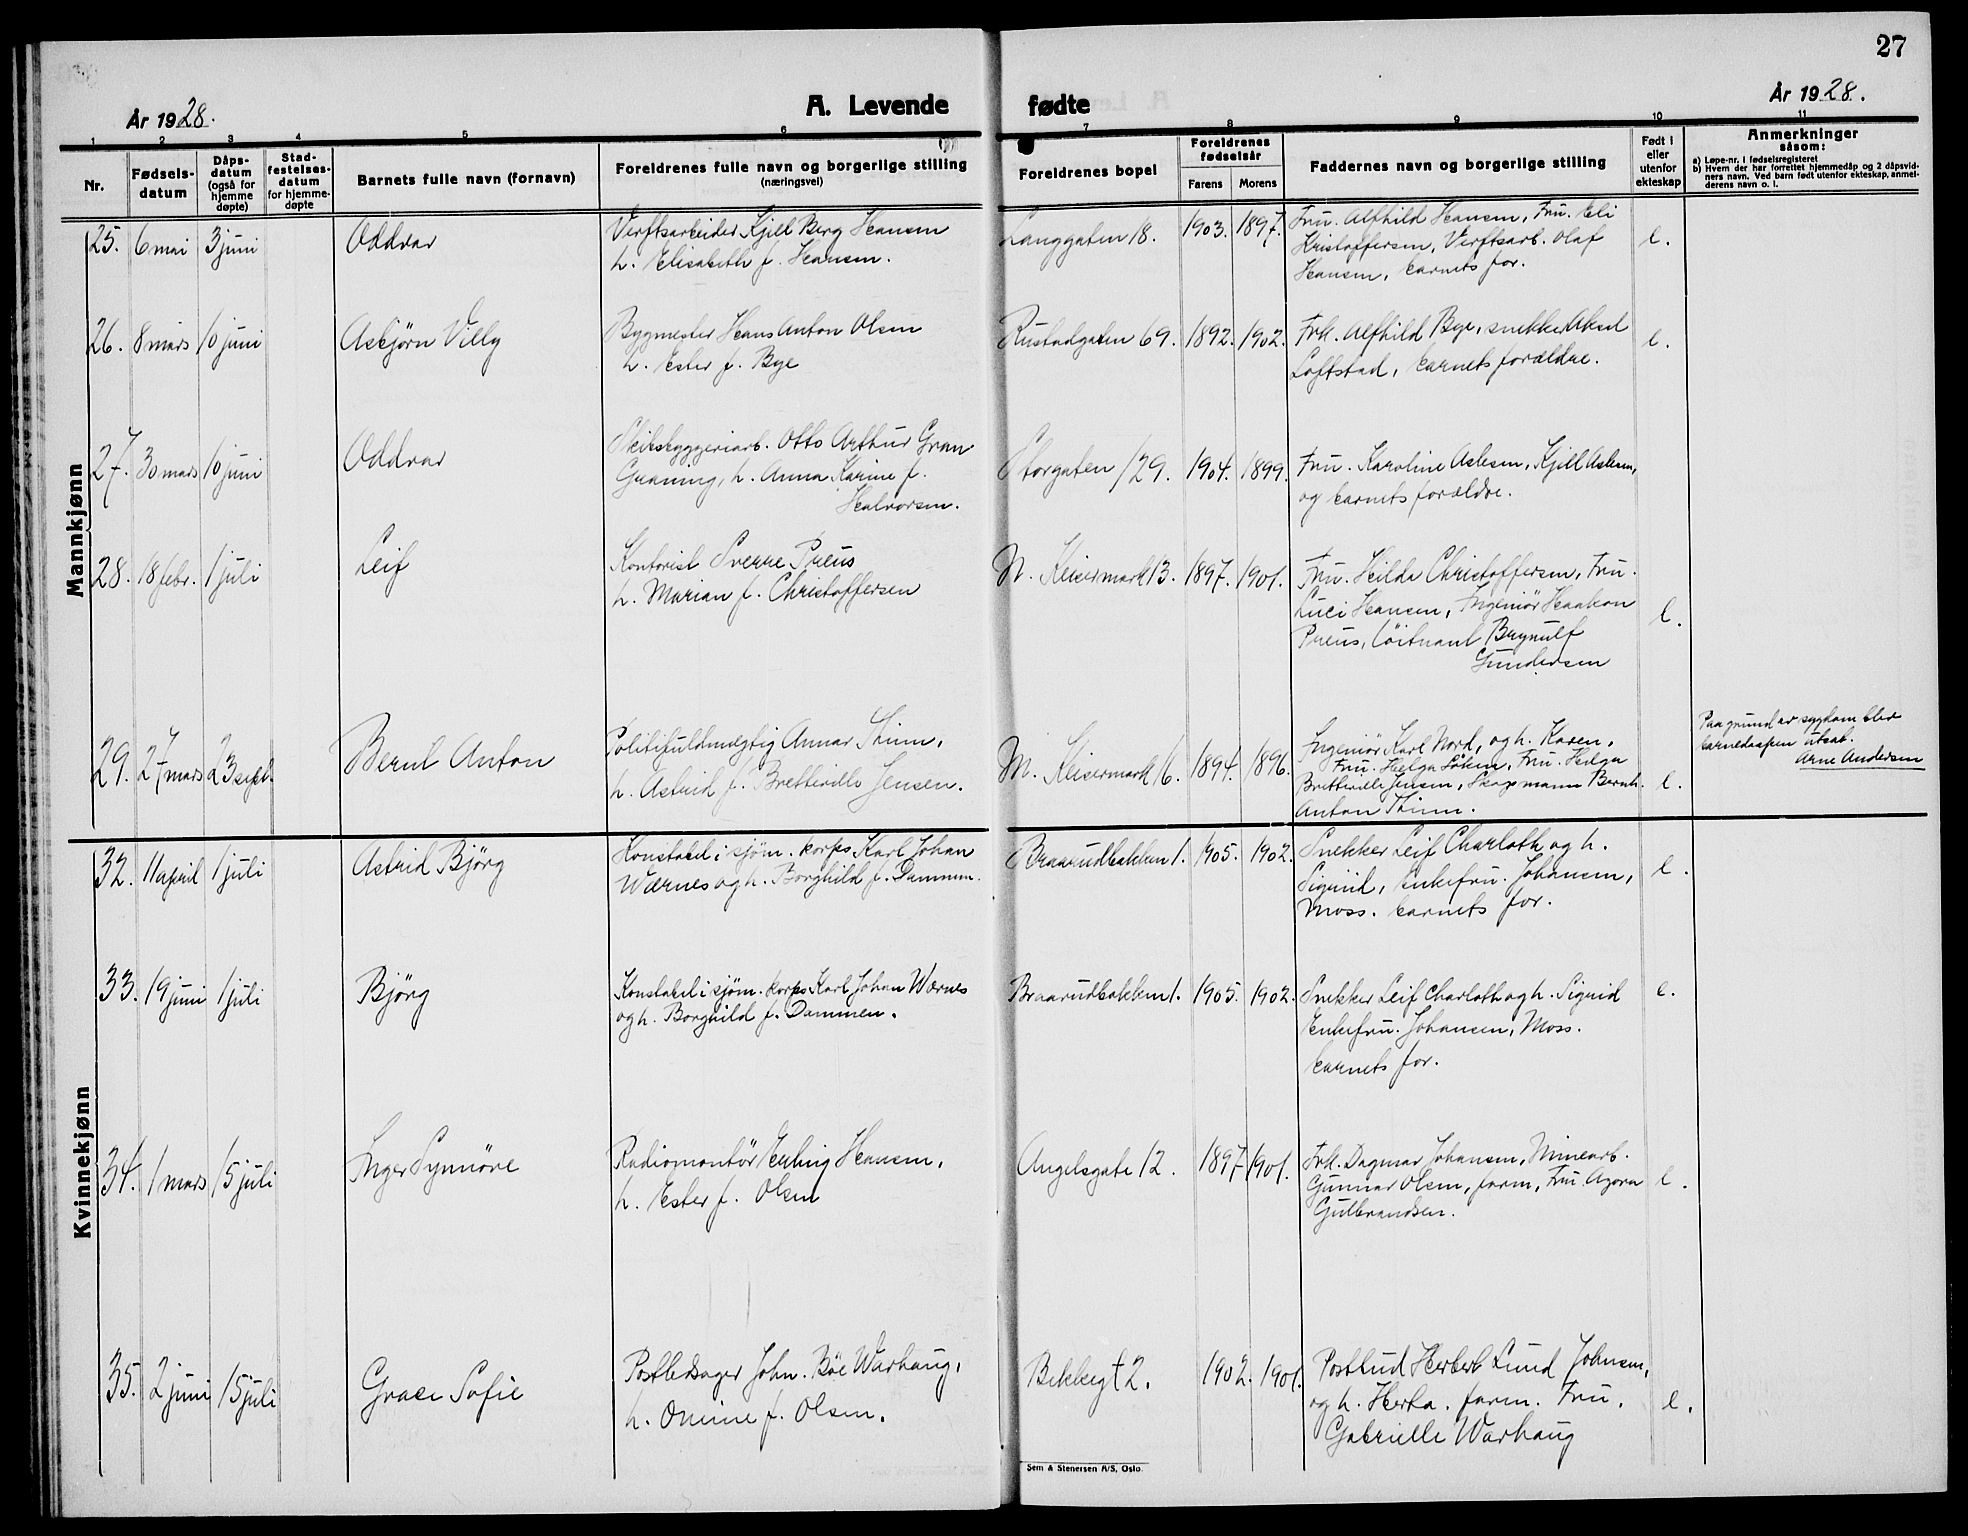 27
År 1928.
A. Levende fødte
År 1928.
1 2 3 4 5 6 7 8 9 10 11
Nr.
Fødsels-
datum
Dåps-
datum
(også for
hjemme
døpte)
Stad-
festelses-
datum
for hjemme-
døpte
Barnets fulle navn (fornavn)
Foreldrenes fulle navn og borgerlige stilling
(næringsvei)
Foreldrenes bopel
Foreldrenes
fødselsår
Farens Morens
Faddernes navn og borgerlige stilling
Født i
eller
utenfor
ekteskap
Anmerkninger
såsom:
a) Løpe-nr. i fødselsregisteret
b) Hvem der har forrettet hjemmedåp og 2 dåpsvid-
ners navn. Ved barn født utenfor ekteskap, anmel-
derens navn o. l.
Mannkjønn
25. 6 mai 3 juni Oddvar Verftsarbeider Kjell Berg Hansen Langgaten 18. 1903. 1897. Fru. Alfhild Hansen, Fru. Eli
h. Elisabeth f. Hansen. Kristoffersen, Verftsarb. Olaf e.
Hansen, barnets for.
26. 8 mars 10 juni Asbjørn Villy Bygmester Hans Anton Olsen Rustadgaten 69. 1892. 1902. Frk. Alfhild Bye, snekker Aksel e.
h. Ester f. Bye Loftstad, barnets forældre.
27. 30 mars 10 juni Oddvar Skibsbyggeriarb. Otto Arthur Gran Storgaten 129. 1904. 1899. Fru. Karoline Aslesen, Kjell Aslesen,
Graning, h. Anna Karine f. og barnets forældre.
Halvorsen.
28. 18 febr. 1 juli Leif Kontorist Sverre Preus N. Keisermark 13. 1897. 1901. Fru. Hilda Christoffersen, Fru.
h. Marian f. Christoffersen Luci Hansen, Ingeniør Haakon e.
Preus, Löitnant Brynulf
Gundersen
29. 27 mars 23 sept. Bernt Anton Politifuldmægtig Annar Thinn, N. Keisermark 16. 1894. 1896. Ingeniør Karl Nord, og h. Karen,
h. Astrid f. Bretteville Jensen. Fru. Helga Löken, Fru. Helga
Bretteville Jensen, Bernh. e.
Anton Thinn.
Paa grund av sygdom blev
barnedaapen utsat.
Arne Andersen
Kvinnekjønn
32. 11 april 1 juli Astrid Bjørg Konstabel i sjøm. korps Karl Johan Braarudbakken 1. 1905. 1902. Snekker Leif Charloth og h.
Wærnes og h. Borghild f. Dammen. Sigrid, enkefru. Johansen, e.
Moss. barnets for.
33. 19 juni 1 juli Bjørg Konstabel i sjøm. korps Karl Johan Wærnes Braarudbakken 1. 1905. 1902. Snekker Leif Charloth og h. Sigrid e.
og h. Borghild f. Dammen. Enkefru. Johansen, Moss.
barnets for.
34. 1 mars 15 juli Inger Synnöve Radiomontör Erling Hansen, Angelsgate 12. 1897 1901. Frk. Dagmar Johansen, Minearb.
h. Ester f. Olsen Gunnar Olsen, farm, Fru. Agora e.
Gulbrandsen.
35. 2 juni 15 juli Grace Sofie Postbedsager John. Böe Warhaug, Bekkegt 2. 1902. 1901. Postbud Herbert Lund Johnsen,
h. Omine f. Olsen. og h. Herba. farm. Fru. e.
Gabrielle Warhaug
Sem & Stenersen A/S, Oslo.